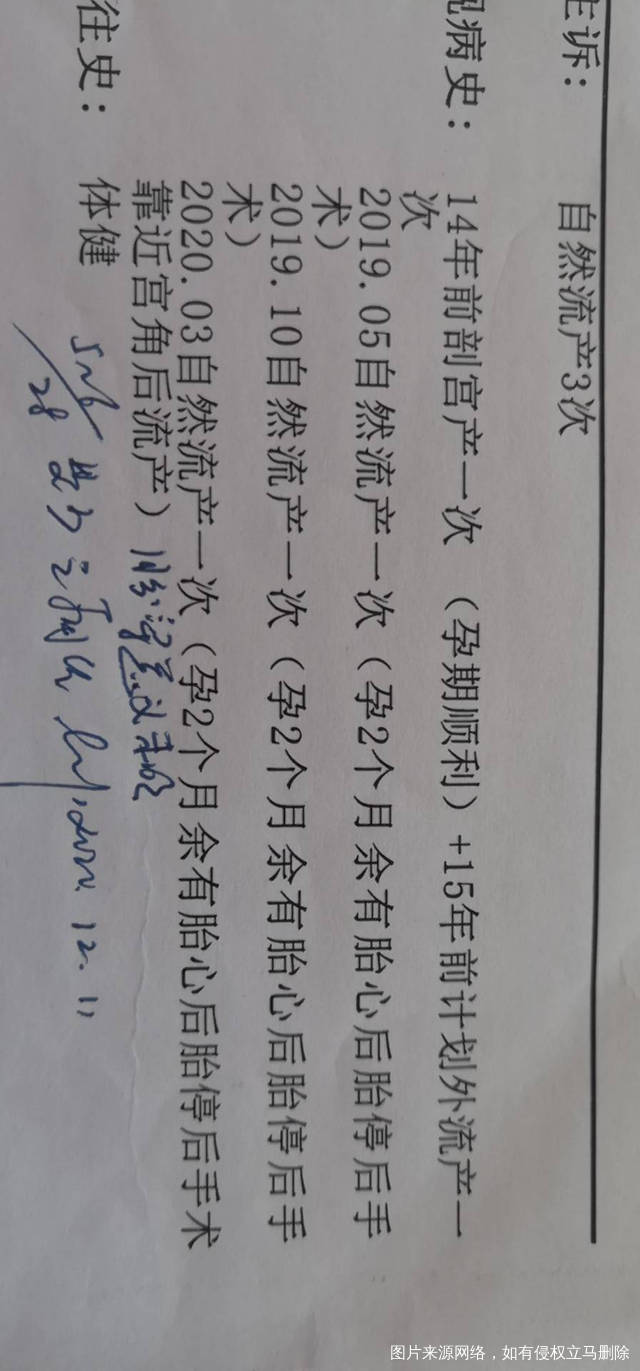 主诉： 自然流产3次
现病史： 14年前剖宫产一次（孕期顺利）+15年前计划外流产一
次
2019.05自然流产一次（孕2个月余有胎心后胎停后手
术）
2019.10自然流产一次（孕2个月余有胎心后胎停后手
术）
2020.03自然流产一次（孕2个月余有胎心后胎停后手术
靠近宫角后流产）
往史： 体健
5
28
12.11
图片来源网络，如有侵权立马删除